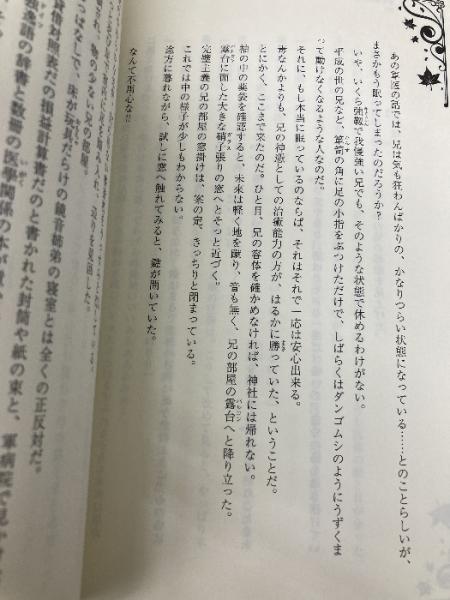 あの軍医の話では、兄は気も狂わんばかりの、かなりつらい状態になっている……とのことらしいが、
まさかもう眠ってしまったのだろうか?
いや、いくら強靱で我慢強い兄でも、そのような状態で休めるわけがない。
平成の世の兄など、箪笥の角に足の小指をぶつけただけで、しばらくはダンゴムシのようにうずくま
って動けなくなるような人なのだ。
それに、もし本当に眠っているのならば、それはそれで一応は安心出来る。
薬なんかよりも、兄の神憑としての治癒能力の方が、はるかに勝っていた、ということだ。
とにかく、ここまで来たのだ。ひと目、兄の容体を確かめなければ、神社には帰れない。
袖の中の薬袋を確認すると、未来は軽く地を蹴り、音も無く、兄の部屋の露台へと降り立った。
露台に面した大きな硝子張りの窓へとそっと近づく。
完璧主義の兄の部屋の窓掛けは、案の定、きっちりと閉まっている。
これでは中の様子が少しもわからない。
途方に暮れながら、試しに窓へ触れてみると、鍵が開いていた。
なんて不用心な!!
っぱなしで、床が玩具だらけの鏡音姉弟の寝室とは全くの正反対だ。
貸借対照表だの損益
書だのと書かれた封筒や紙の束と、軍病院で見か
独逸語の辞書と
の医学関係の本が